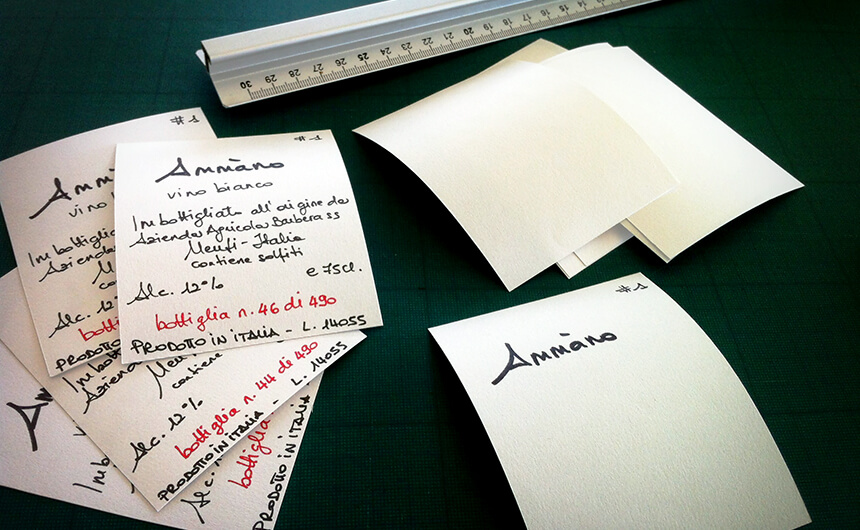 30 29 28 27 26 25 24 23 22 21 20 19 18 17 16 15 14
#1
Ammàno
vino bianco
Imbottigliato all'origine da
Azienda Agricola Barbera ss
Menfi - Italia
contiene solfiti
e 75cl.
Alc. 12%
bottiglia n. 46 di 490
PRODOTTO IN ITALIA - L. 14055
#1
Ammàno
vino bi
Imbottiglia
Azienda
M
Alc. 12%
bottig
PRODOTTO
Imbot
Azienda
Menf
contiene
Alc. 12%
bottiglia n. 44 di 490
PRODOTTO IN ITALIA - L. 14055
Am
Imb
Az
Alc.
bottiglia
PRODOTTO IN ITALIA
#1
Ammàno